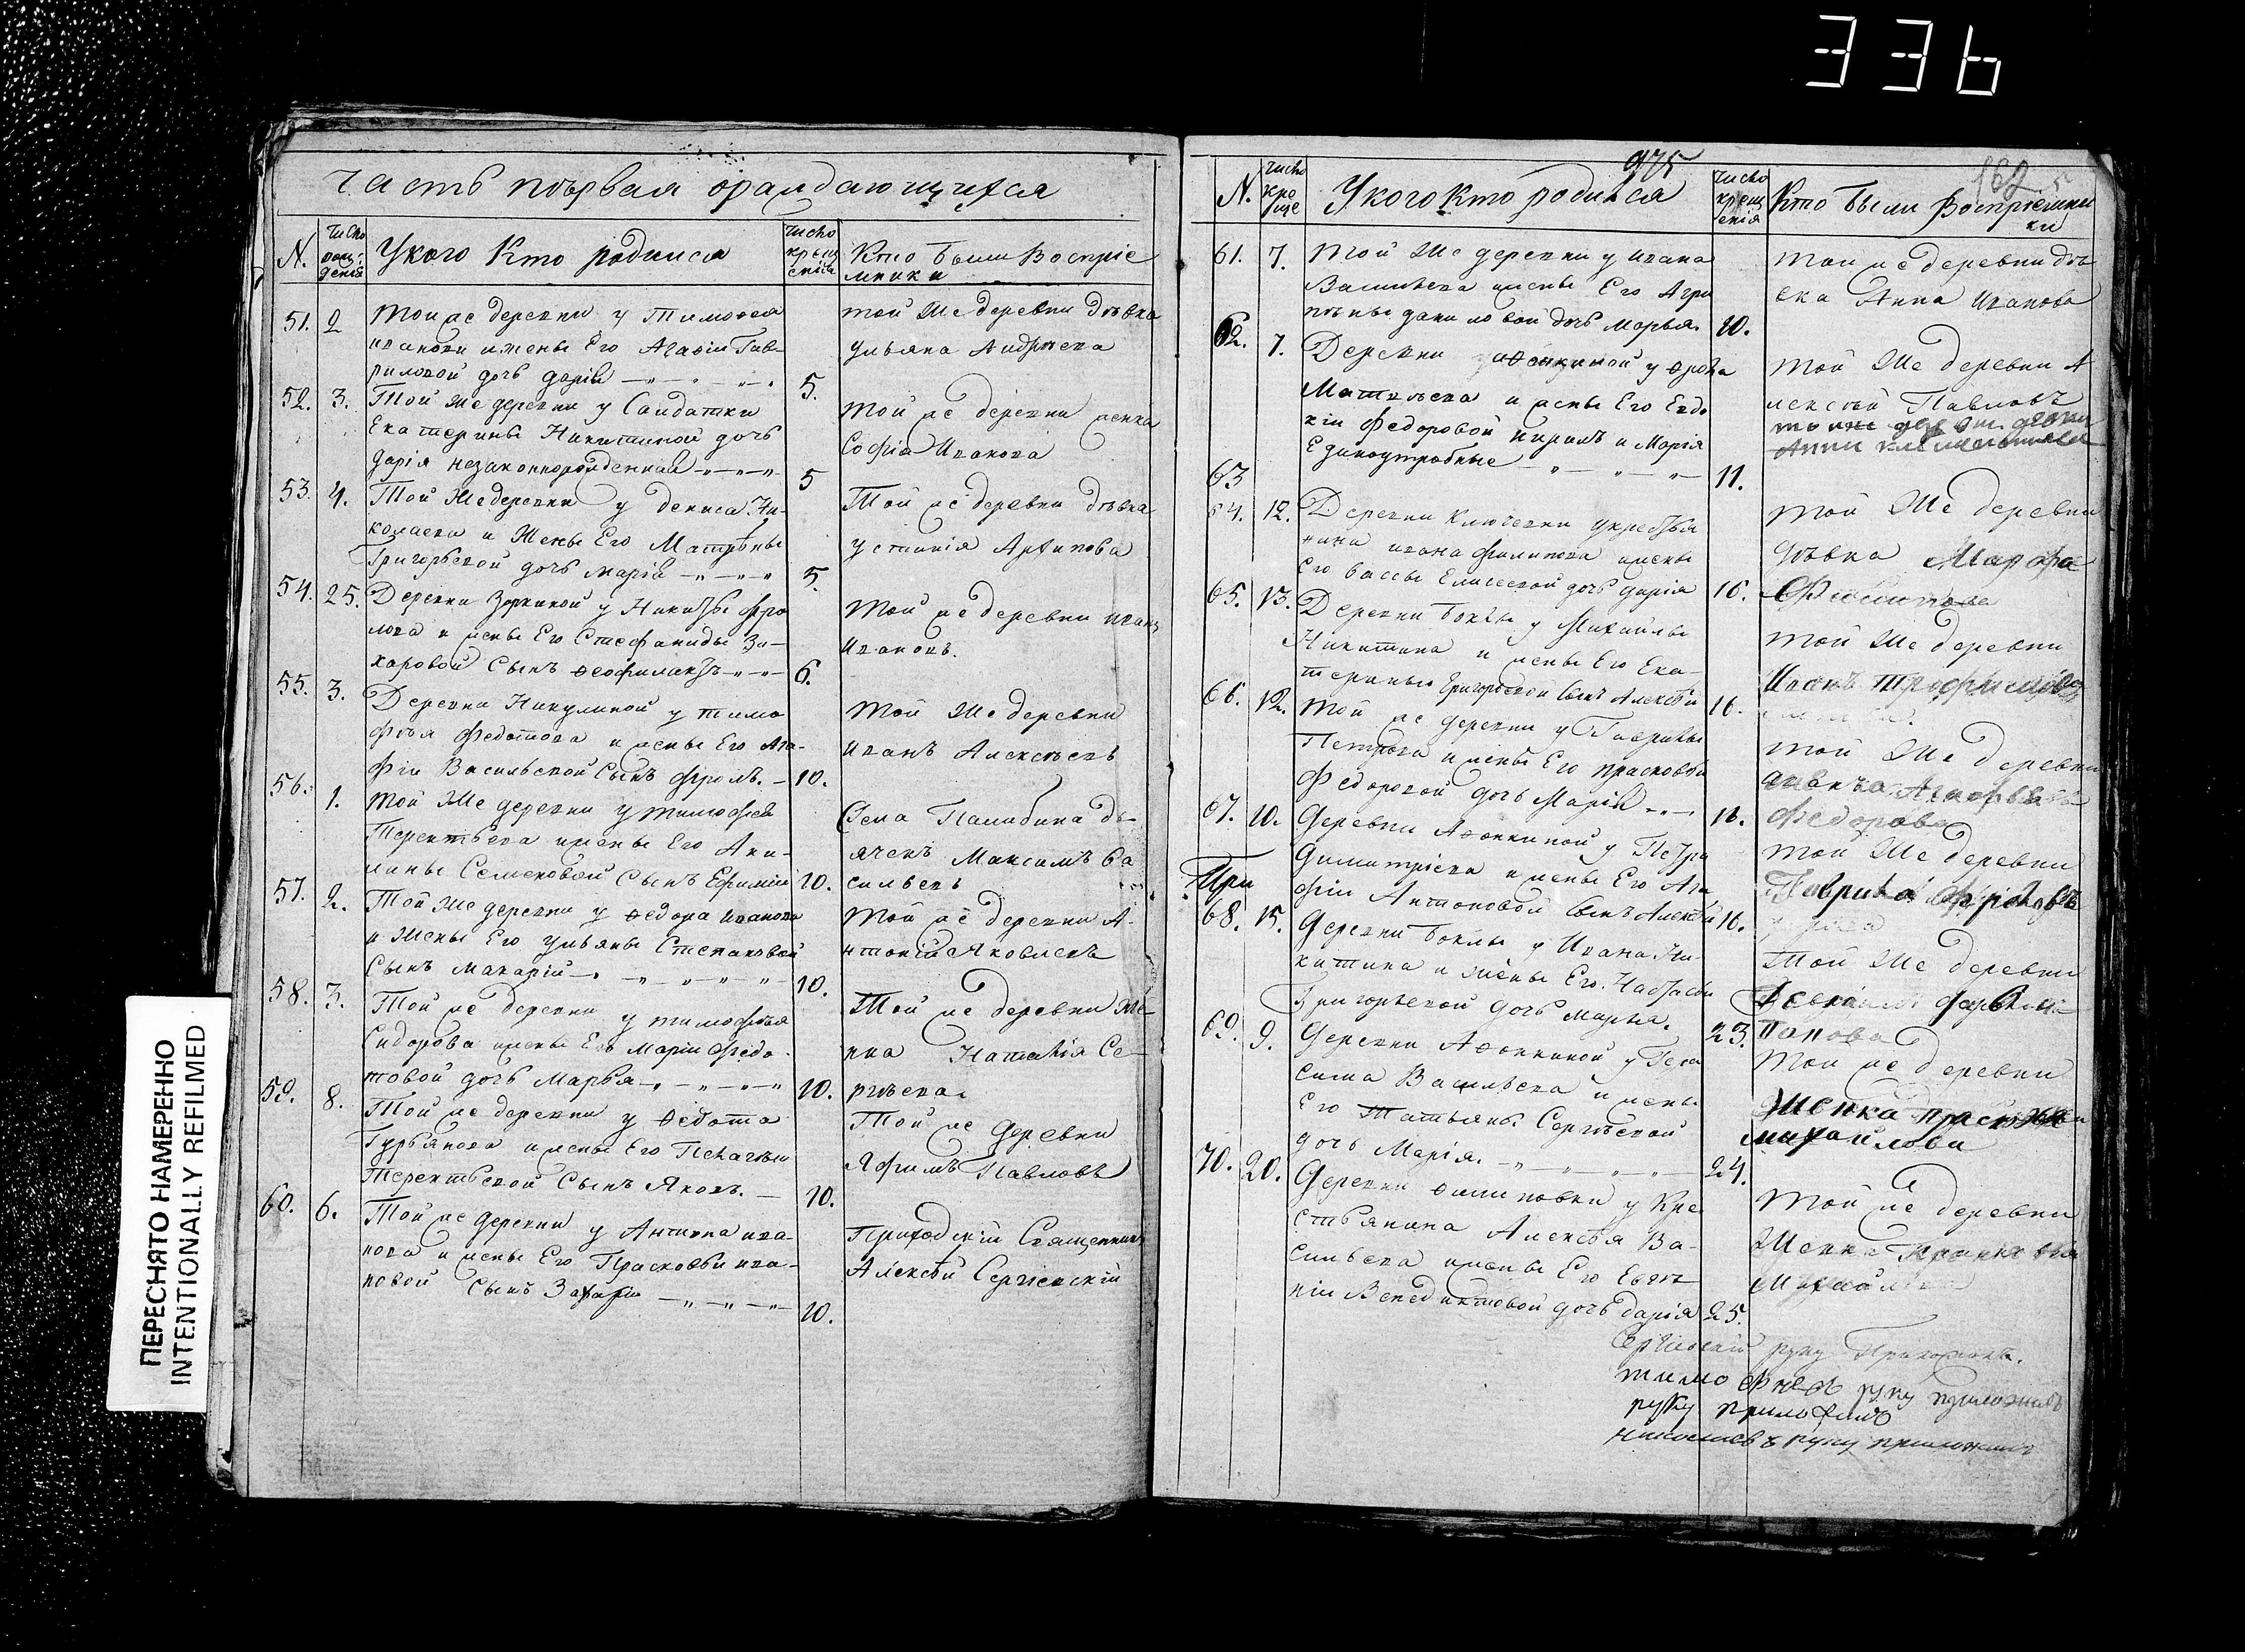 336
Часть първая ораждающихся
N. Число рожденiя У кого Кто родился Число крещенiя Кто были Восприемники
51. 2 той же деревни у Тимофея
Иванова и жены Его Агафiи Гав-
риловой дочь Дарiя 5.
той же деревни дѣвка
Ульяна Андрѣева
52. 3. Той же деревни у Салдатки
Екатерины Никитиной дочь
Дарiя незаконнорожденная 5
той же деревни женка
Софiя Иванова
53. 4. Той же деревни у Дениса Ни-
колаева и Жены Его Матрены
Григорьевой дочь Марiя 5.
Той же деревни дѣвка
Устинiя Архипова
54. 25. Деревни Зоркиной у Никиты Фро
лова и жены Его Стефаниды За-
харовой Сынъ Ѳеофилактъ 6.
Той же деревни Иванъ
Ивановъ.
55. 3. Деревни Никулиной у Тимо
фѣя Федотова и жены Его Ага-
фiи Васильевой Сынъ Фролъ. 10.
Той Же деревни
Иванъ Алексѣевъ
56. 1. той Же деревни у Тимофея
Терентьева и жены Его Аки-
лины Семеновой Сынъ Ефимiй 10.
Села Палибина дь-
ячекъ Максимъ Ва
сильевъ
57. 2. Той Же деревни у Ѳедора Иванова
и Жены Его Ульяны Степановой
Сынъ Макарiй 10.
Той же деревни А-
нтонiй Яковлевъ
58. 3. Той же деревни у Тимофѣя
Сидорова и жены Его Марiи Федо-
товой дочь Марья 10.
Той же деревни Же-
нка Наталiя Се-
ргѣева.
59. 8. Той же деревни у Ѳедота
Гурьянова и жены Его Пелагѣи
Терентьевой Сынъ Яковъ. 10.
Той же деревни
Яфимъ Павловъ
60. 6. Той же деревни у Антипа Ива-
нова и жены Его Прасковьи Ива-
новой Сынъ Захарiй 10.
Приходскiй Священникъ
Алексѣй Сергiевскiй
975
162
N. У кого Кто родился Число крещенiя Кто были Восприемники
61. 7. Той Же деревни у Ивана
Васильева и жены Его Агри
пѣны Даниловой дочь Марья. 10.
той же деревни дѣ
вка Анна Иванова
62. 7. Деревни Аѳонкиной у Ѳрола
Матвѣева и жены Его Евдо
кiи Федоровой Кирилъ и Марiя
63 Единоутробные 11.
той Же деревни А
лексѣй Павловъ
64. 12. Деревни Ключевки у крестья
нина Ивана Филипова и жены
Его Вассы Елисеевой дочь Дарiя 16.
той Же деревни
дѣвка Марфа
Филипова
65. 13. Деревни Боклы у Михайлы
Никитина и жены Его Ека-
терины Григорьевой Сынъ Алексѣй 16.
той Же деревни
Иванъ
66. 12. Той же деревни у Гаврилы
Петрова и жены Его Прасковьи
Федоровой дочь Марiя 16.
той Же деревни
Федорова
67. 10. Деревни Аѳонкиной у Петра
Димитрiева и жены Его Ага
фiи Антоновой Сынъ Алексѣй 16.
той Же деревни
Гаврила Фроловъ
При
68. 15. Деревни Боклы у Ивана Ни-
китина и Жены Его Настасьи
Григорьевой дочь Марья. 23.
Той Же деревни
69. 9. Деревни Аѳонкиной у Гера
сима Васильева и жены
Его Татьяны Сергѣевой
дочь Марiя. 24.
Той же деревни
Женка Прасковья
Михайлова
70. 20. Деревни Филиповки у Кре
стьянина Алексѣя Ва-
сильева и жены Его Евге
нiи Венедиктовой дочь Дарiя 25.
Той же деревни
Женка
руку
руку приложилъ
руку приложилъ
руку приложилъ
ПЕРЕСНЯТО НАМЕРЕННО
INTENTIONALLY REFILMED